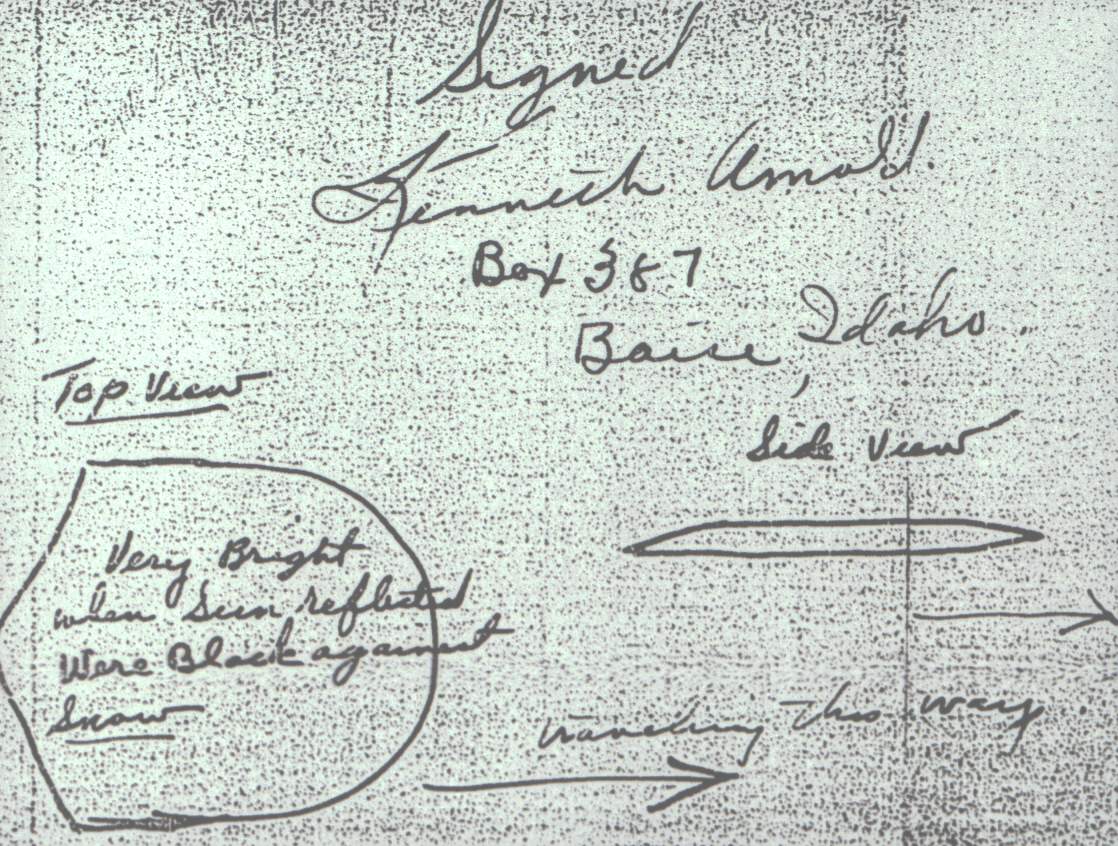 Signed
Kenneth Arnold.
Box 387
Boise, Idaho.
Top View
Side View
Very Bright
when Sun reflected
Were Black against
Snow
traveling this way.